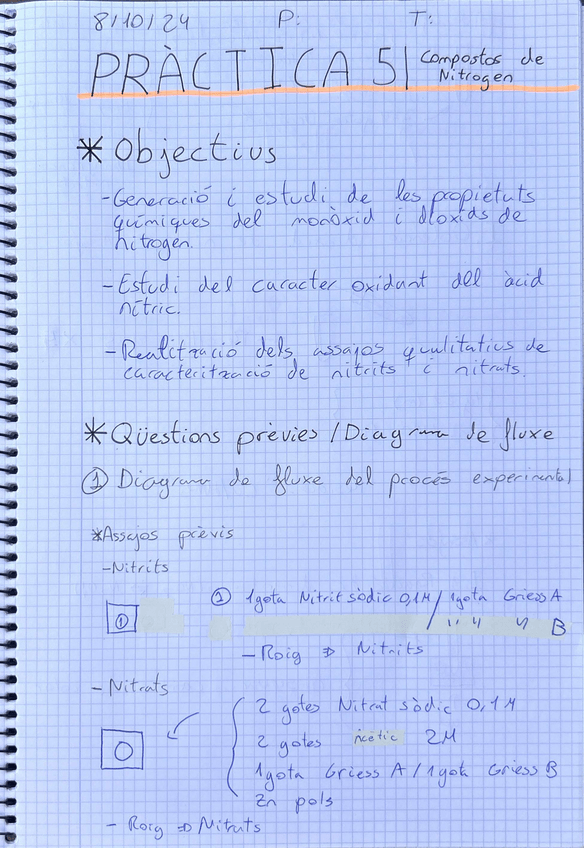 8/10/24 P: T:
PRÀCTICA 5 | Compostos de
Nitrogen
* Objectius
- Generació i estudi de les propietats
químiques del monòxid i diòxids de
nitrogen.
- Estudi del caracter oxidant del àcid
nítric.
- Realització dels assajos qualitatius de
caracterització de nitrits i nitrats.
* Qüestions prèvies / Diagrama de fluxe
① Diagrama de fluxe del procés experimental
* Assajos prèvis
- Nitrits
① ① 1 gota Nitrit sòdic 0,1M / 1 gota Griess A
/ " " " B
- Roig ⇒ Nitrits
- Nitrats
2 gotes Nitrat sòdic 0,1 M
2 gotes àcetic 2M
1 gota Griess A / 1 gota Griess B
Zn pols
- Roig ⇒ Nitrats